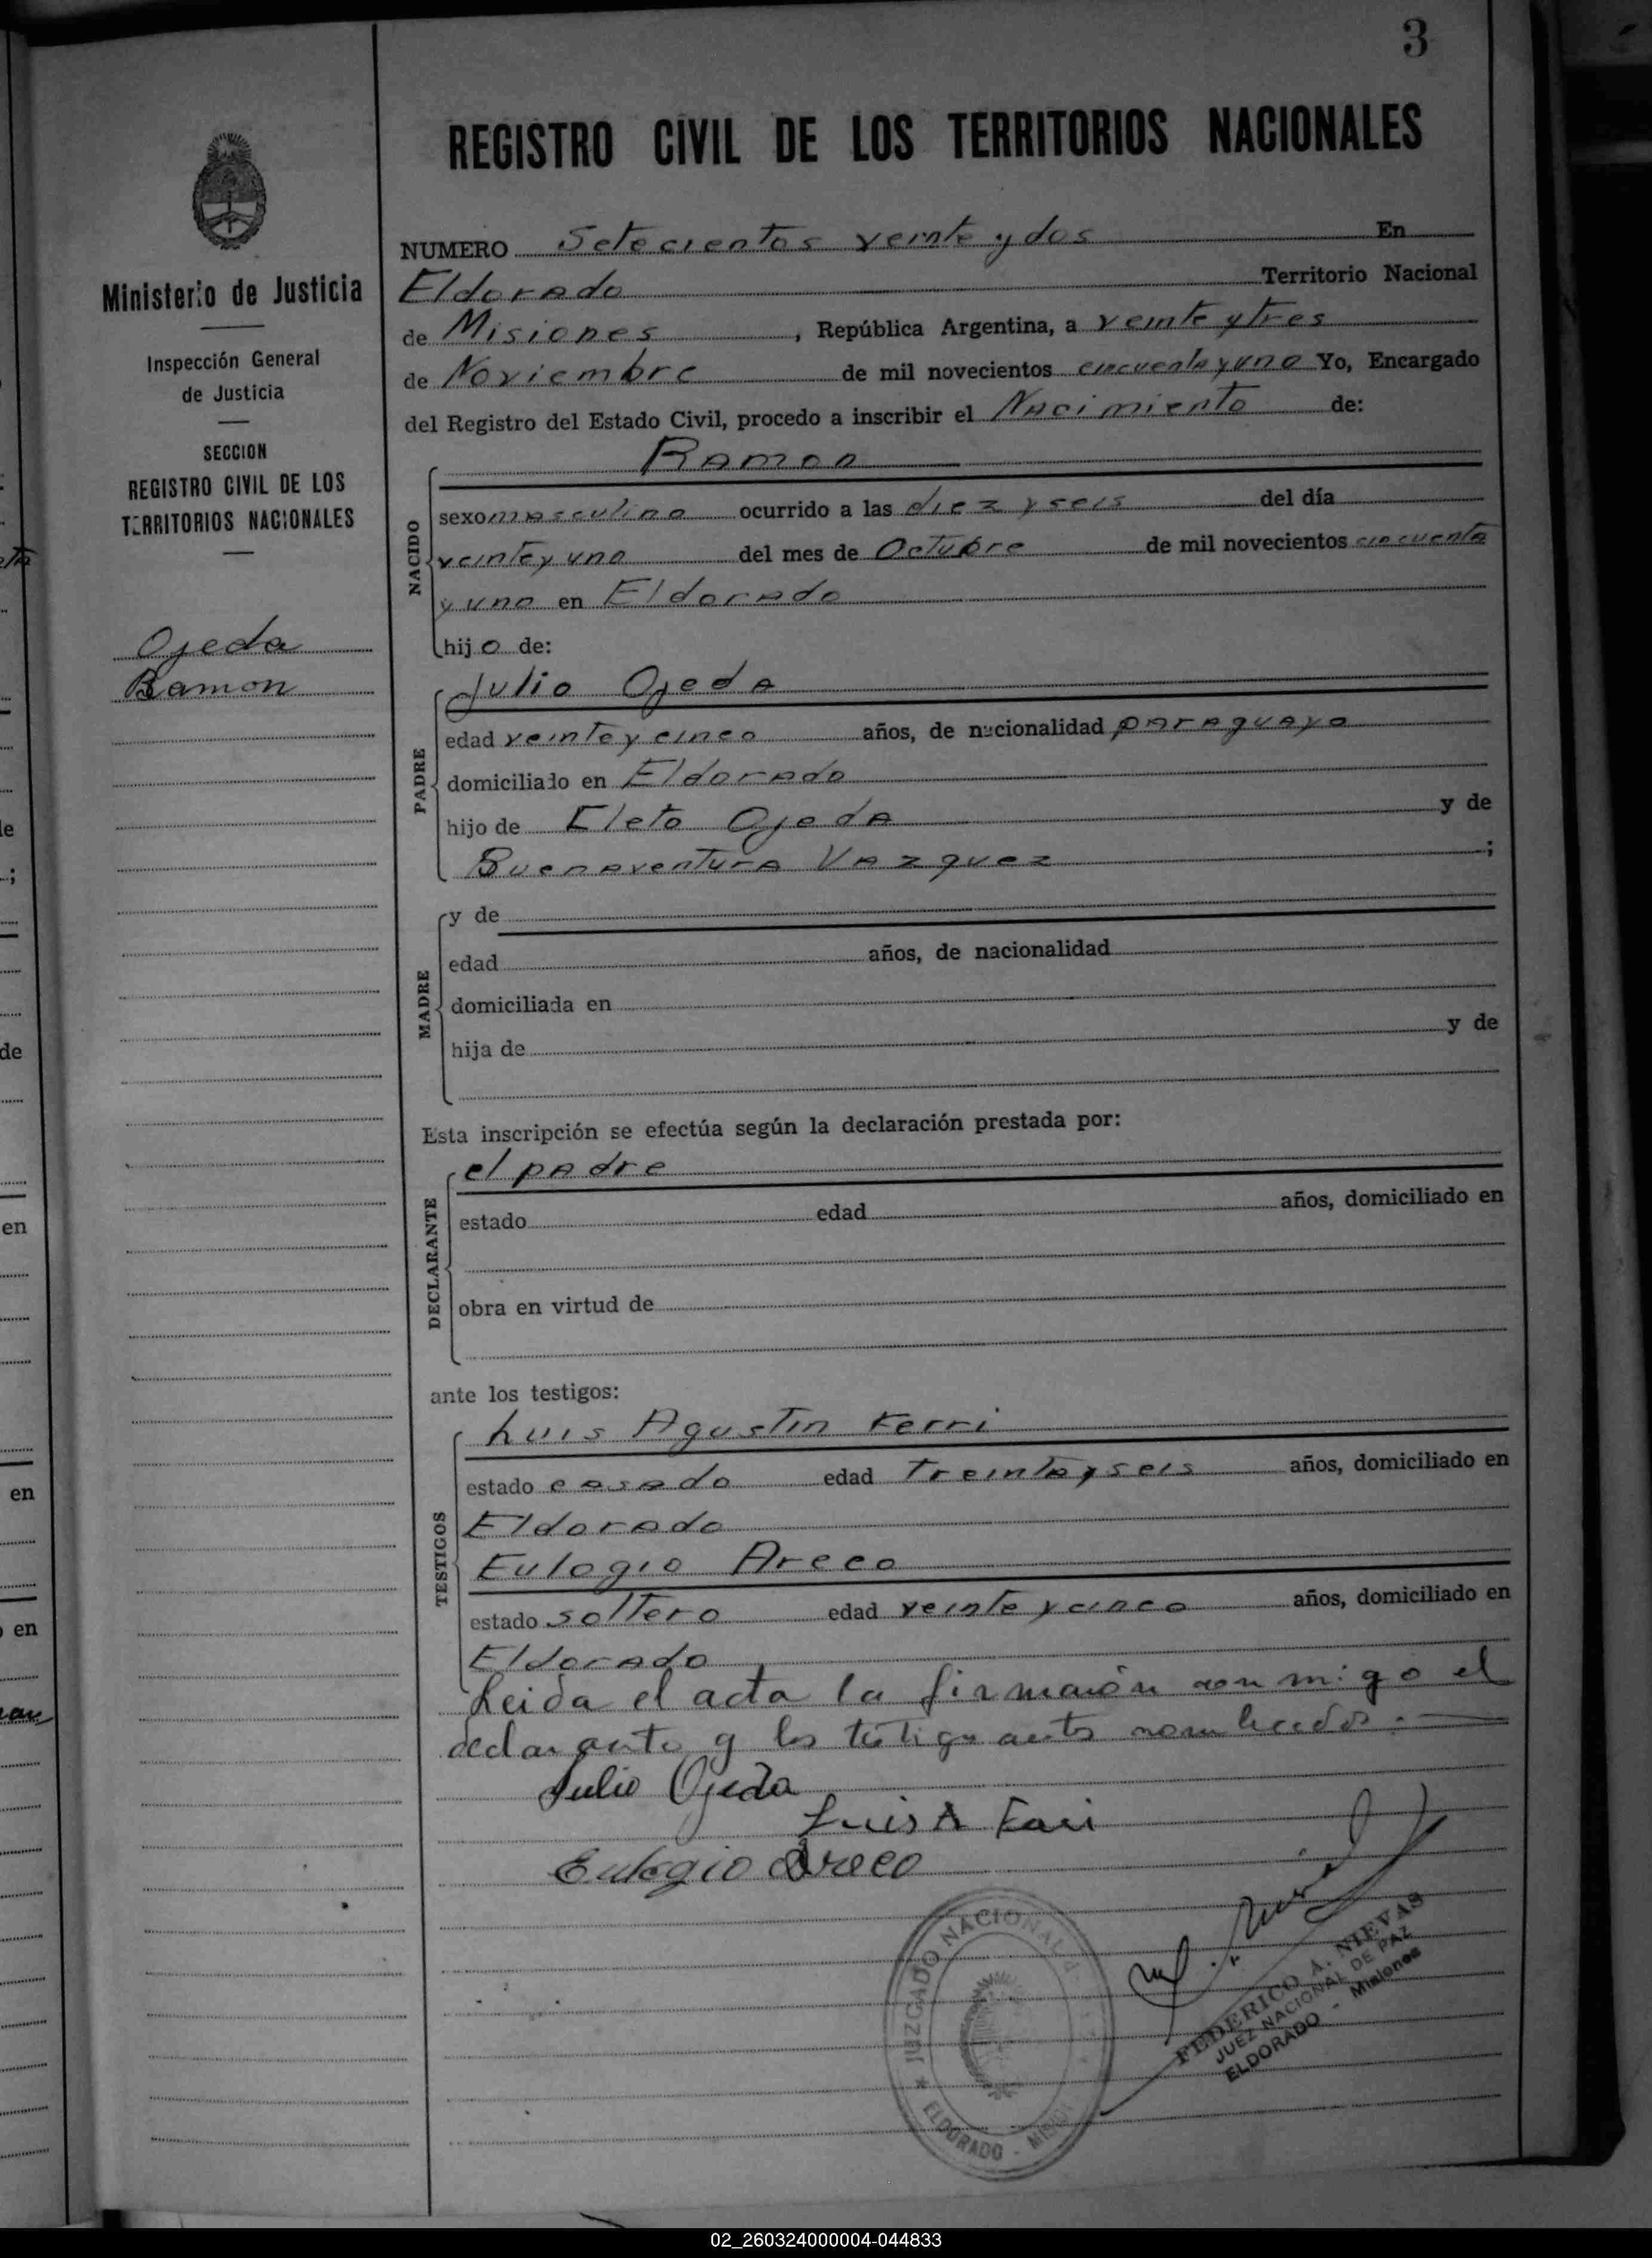 3
REGISTRO CIVIL DE LOS TERRITORIOS NACIONALES
Ministerio de Justicia
Inspección General
de Justicia
SECCION
REGISTRO CIVIL DE LOS
TERRITORIOS NACIONALES
Ojeda
Ramon
NUMERO Setecientos veinte y dos En
Eldorado Territorio Nacional
de Misiones, República Argentina, a veinte y tres
de Noviembre de mil novecientos cincuenta y uno Yo, Encargado
del Registro del Estado Civil, procedo a inscribir el Nacimiento de:
NACIDO
Ramon
sexo masculino ocurrido a las diez y seis del día
veinte y uno del mes de Octubre de mil novecientos cincuenta
y uno en Eldorado
hijo de:
PADRE
Julio Ojeda
edad veinte y cinco años, de nacionalidad paraguayo
domiciliado en Eldorado
hijo de Cleto Ojeda y de
Buenaventura Vazquez ;
MADRE
y de
edad años, de nacionalidad
domiciliada en
hija de y de
Esta inscripción se efectúa según la declaración prestada por:
DECLARANTE
el padre
estado edad años, domiciliado en
obra en virtud de
ante los testigos:
TESTIGOS
Luis Agustin Ferri
estado casado edad treinta y seis años, domiciliado en
Eldorado
Eulogio Areco
estado soltero edad veinte y cinco años, domiciliado en
Eldorado
Leida el acta la firmaron conmigo el
declarante y los testigos antes nombrados.
Julio Ojeda
Luis A Ferri
Eulogio Areco
JUZGADO NACIONAL
ELDORADO - MISIONES
FEDERICO A. NIEVAS
JUEZ NACIONAL DE PAZ
ELDORADO - Misiones
02_260324000004-044833